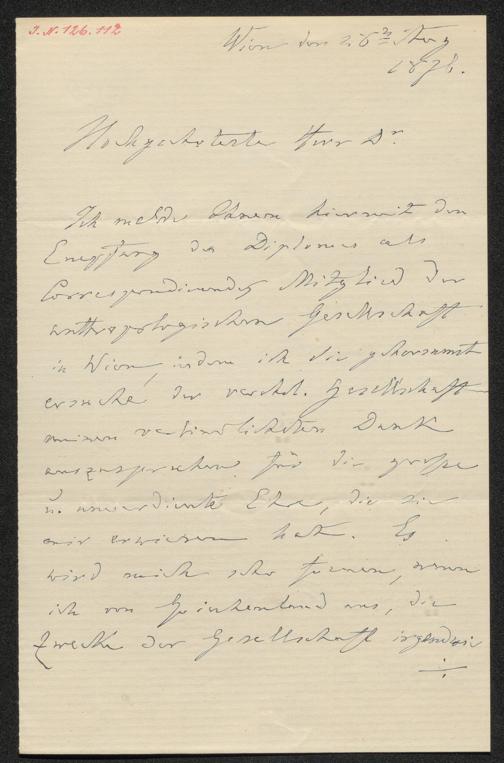 J. N. 126.112
Wien den 26ten May
1876.
Hochgeehrtester Herr Dr.
Ich melde Ihnen hiermit den
Empfang des Diplomes als
Correspondirendes Mitglied der
anthropologischen Gesellschaft
in Wien, indem ich Sie gehorsamst
ersuche der verehrl. Gesellschaft
meinen verbindlichsten Dank
auszusprechen für die große
u. unverdiente Ehre, die sie
mir erwiesen hat. Es
wird mich sehr freuen, wenn
ich von Griechenland aus, die
Zwecke der Gesellschaft irgendwie